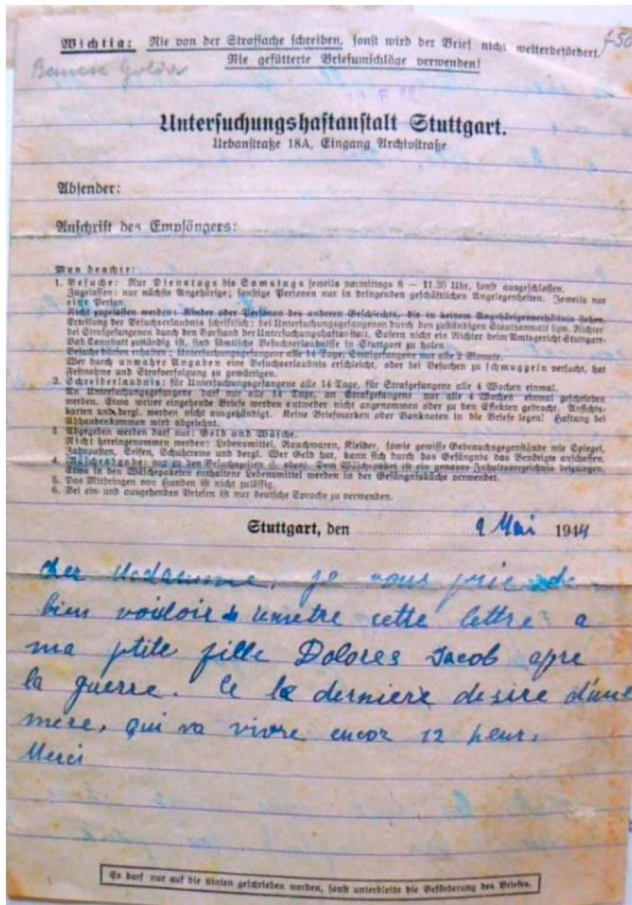 Wichtig: Nie von der Strafsache schreiben, sonst wird der Brief nicht weiterbefördert.
Nie gefütterte Briefumschläge verwenden!
Untersuchungshaftanstalt Stuttgart.
Urbanstraße 18A, Eingang Archivstraße
Absender:
Anschrift des Empfängers:
Man beachte:
1. Besuche: Nur Dienstags bis Samstags jeweils vormittags 8 — 11.30 Uhr, sonst ausgeschlossen.
Zugelassen: nur nächste Angehörige; sonstige Personen nur in dringenden geschäftlichen Angelegenheiten. Jeweils nur
eine Person.
Nicht zugelassen werden: Kinder oder Personen des anderen Geschlechts, die in keinem Angehörigenverhältnis stehen.
Erteilung der Besuchserlaubnis schriftlich: bei Untersuchungsgefangenen durch den zuständigen Staatsanwalt bzw. Richter
bei Strafgefangenen durch den Vorstand der Untersuchungshaftanstalt. Sofern nicht ein Richter beim Amtsgericht Stuttgart-
Bad Cannstatt zuständig ist, sind sämtliche Besuchserlaubnisse in Stuttgart zu holen.
Besuche dürfen erhalten: Untersuchungsgefangene alle 14 Tage, Strafgefangene nur alle 2 Monate.
Wer durch unwahre Angaben eine Besuchserlaubnis erschleicht, oder bei Besuchen zu schmuggeln versucht, hat
Festnahme und Strafverfolgung zu gewärtigen.
2. Schreiberlaubnis: für Untersuchungsgefangene alle 14 Tage, für Strafgefangene alle 4 Wochen einmal.
An Untersuchungsgefangene darf nur alle 14 Tage, an Strafgefangene nur alle 4 Wochen einmal geschrieben
werden. Etwa weiter eingehende Briefe werden entweder nicht angenommen oder zu den Effekten gebracht. Ansichts-
karten und dergl. werden nicht ausgehändigt. Keine Briefmarken oder Banknoten in die Briefe legen! Haftung bei
Abhandenkommen wird abgelehnt.
3. Abgegeben werden darf nur: Geld und Wäsche.
Nicht hereingenommen werden: Lebensmittel, Rauchwaren, Kleider, sowie gewisse Gebrauchsgegenstände wie Spiegel,
Zahnpasten, Seifen, Schuhcreme und dergl. Wer Geld hat, kann sich durch das Gefängnis das Benötigte anschaffen.
4. Wäscheabgabe: nur zu den Besuchszeiten (s. oben). Dem Wäschepaket ist ein genaues Inhaltsverzeichnis beizulegen.
Etwa in den Wäschepaketen enthaltene Lebensmittel werden in der Gefängnisküche verwendet.
5. Das Mitbringen von Hunden ist nicht zulässig.
6. Bei ein- und ausgehenden Briefen ist nur deutsche Sprache zu verwenden.
Stuttgart, den 9 Mai 1944
cher Madamme, je vous prie de
bien vouloir de remetre cette lettre a
ma ptite fille Dolores Jacob apre
la guerre. Ce le derniere desire d'une
mère, qui va vivre encor 12 heur.
Merci
Es darf nur auf die Linien geschrieben werden, sonst unterbleibt die Beförderung des Briefes.